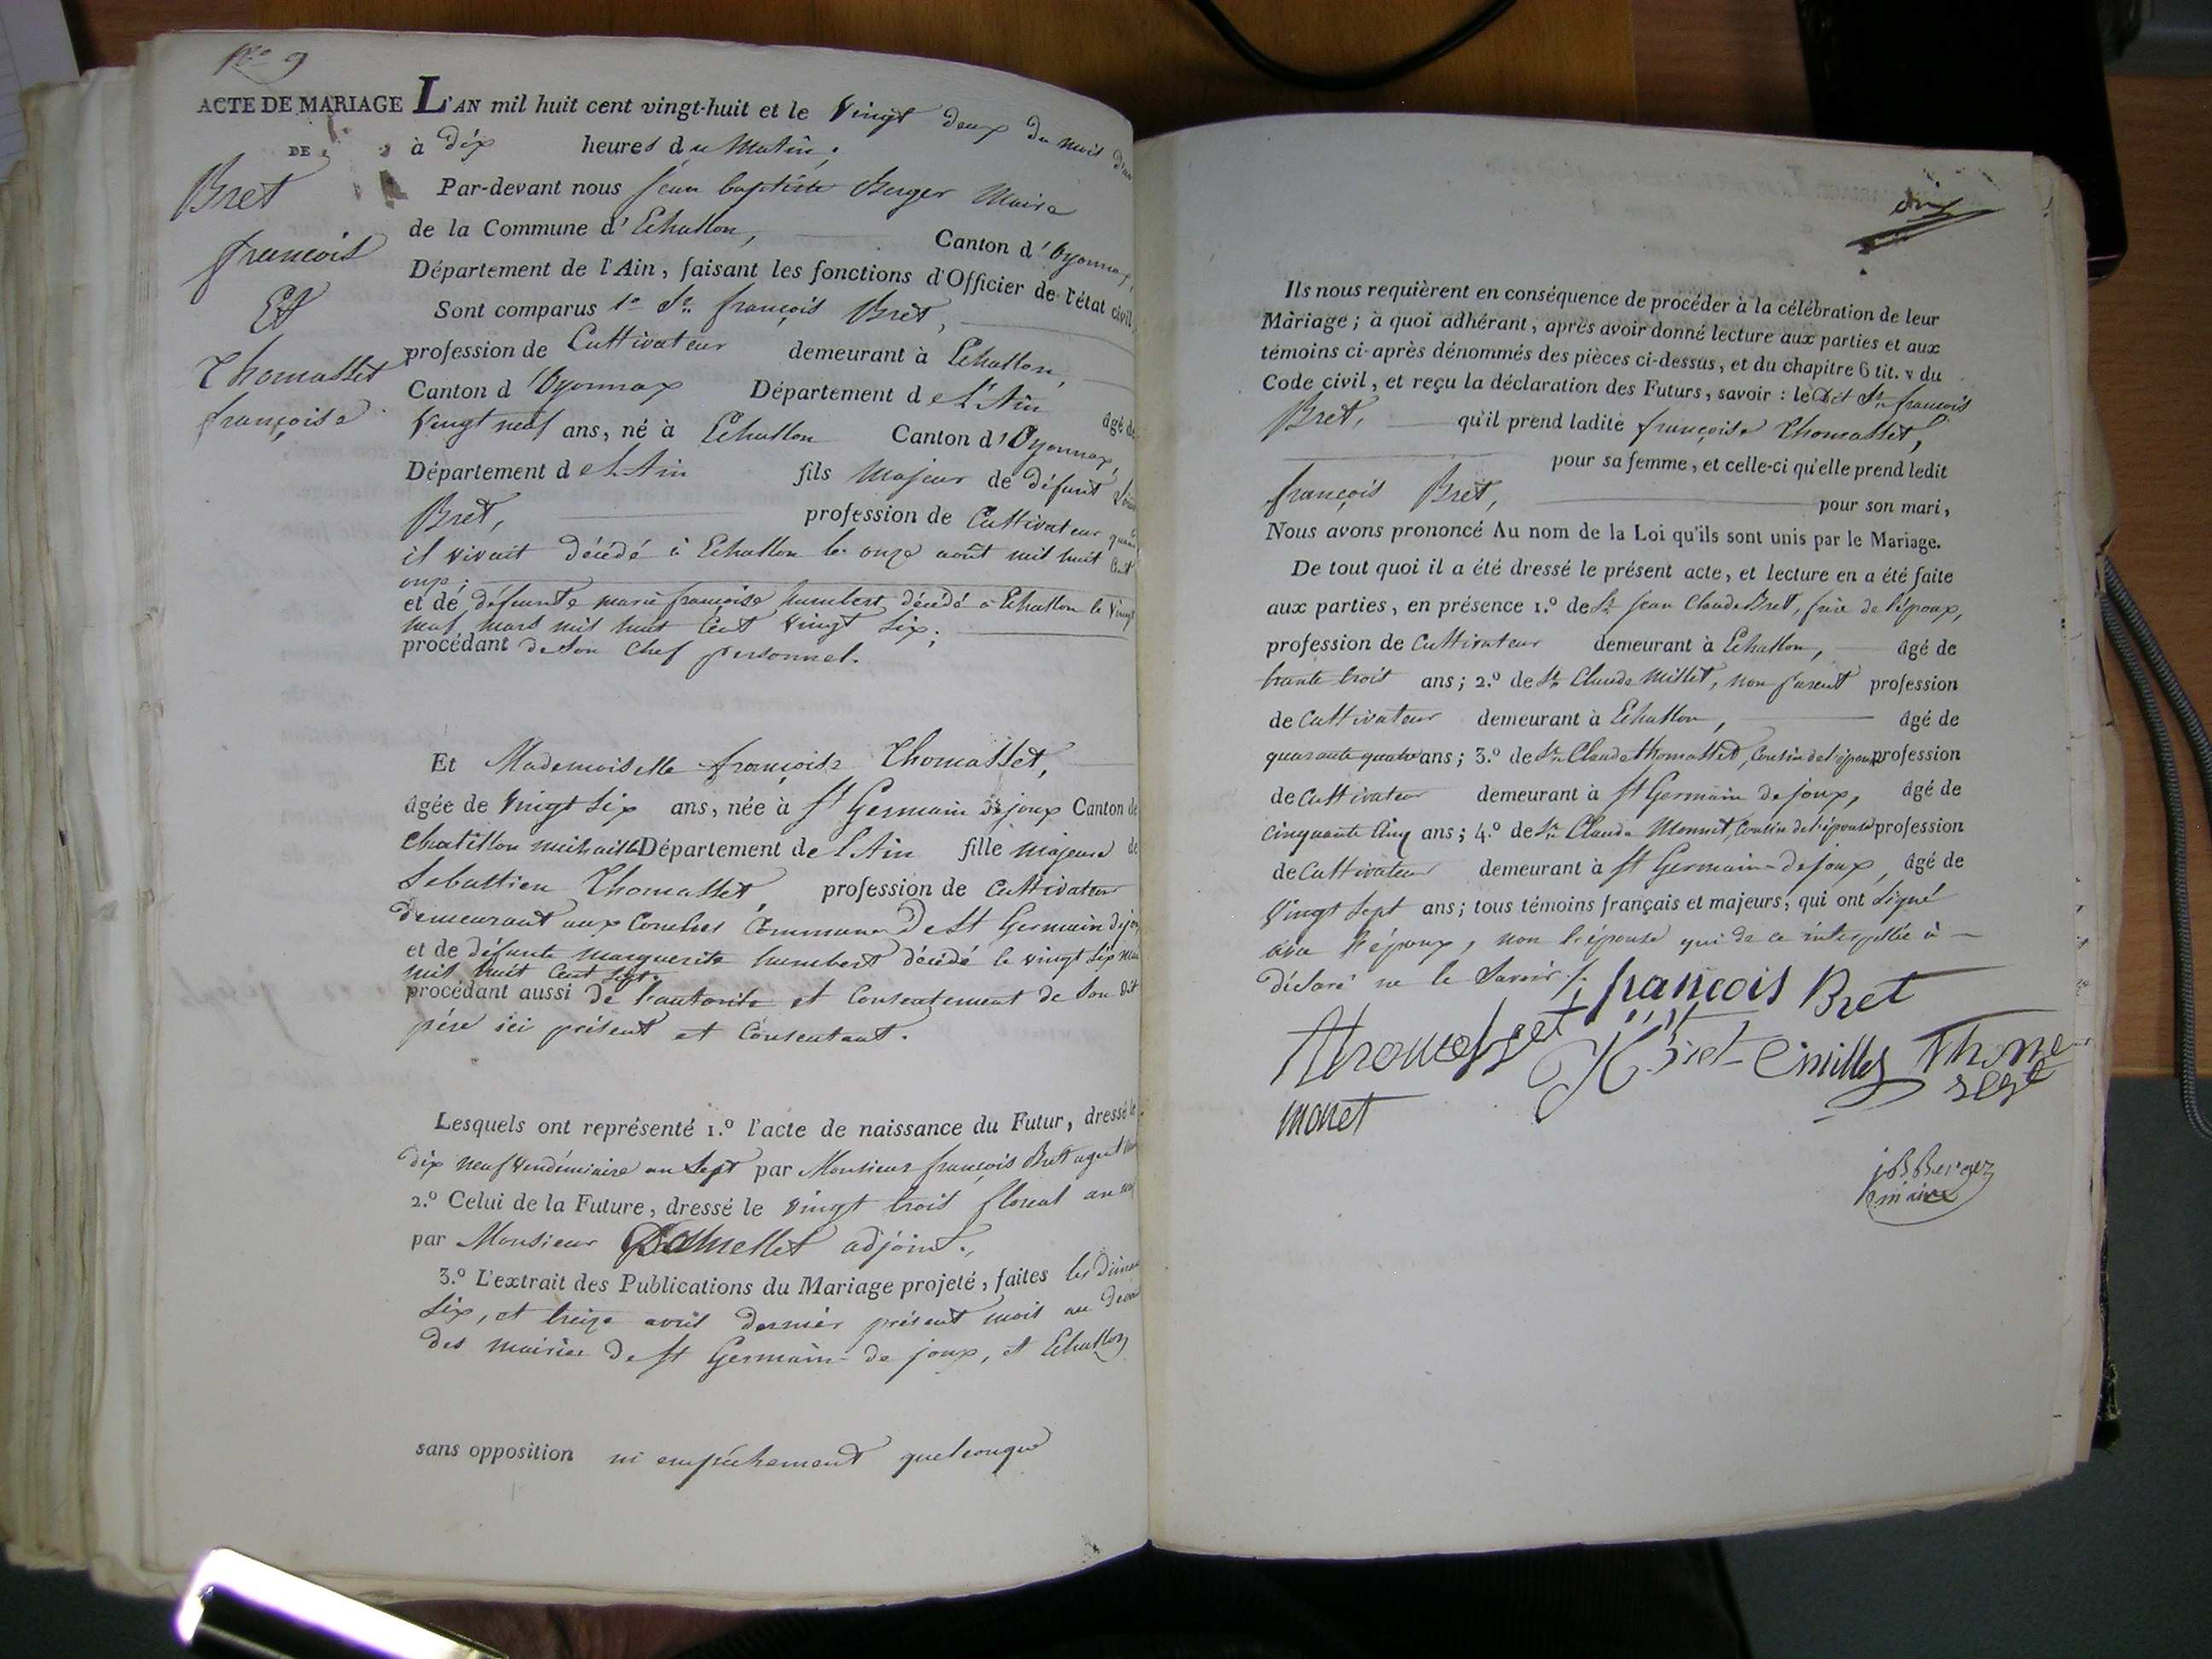 No 9
ACTE DE MARIAGE
DE
Bret
françois
Et
Thomasset
françoise
L'AN mil huit cent vingt-huit et le vingt deux du mois
à dix heures du Matin,
Par-devant nous jean baptiste Berger Maire
de la Commune d'Echallon, Canton d'Oyonnax,
Département de l'Ain, faisant les fonctions d'Officier de l'état civil
Sont comparus 1º Sr. françois Bret,
profession de Cultivateur demeurant à Echallon,
Canton d'Oyonnax Département de l'Ain âgé de
vingt neuf ans, né à Echallon Canton d'Oyonnax,
Département de l'Ain fils Majeur de défunt
Bret, profession de Cultivateur quand
il vivait décédé à Echallon le onze août mil huit cent
onze;
et de défunte marie françoise humbert décédé à Echallon le vingt
neuf mars mil huit cent vingt six;
procédant de son chef personnel.
Et Mademoiselle françoise Thomasset,
âgée de vingt six ans, née à St Germain de joux Canton de
Chatillon michaille Département de l'Ain fille majeure de
Sebastien Thomasset, profession de Cultivateur
demeurant aux Conches Commune de St Germain de joux
et de défunte marguerite humbert décédé le vingt six
mil huit cent sept.
procédant aussi de l'autorité et consentement de son dit
père ici présent et consentant.
Lesquels ont représenté 1.º l'acte de naissance du Futur, dressé le
dix neuf vendémiaire an sept par Monsieur françois Bret agent
2.º Celui de la Future, dressé le vingt trois floreal an
par Monsieur adjoint.,
3.º L'extrait des Publications du Mariage projeté, faites les
six, et treize avril dernier présent mois au
des mairies de St Germain de joux, et Echallon
sans opposition ni empéchement quelconque
dix
Ils nous requièrent en conséquence de procéder à la célébration de leur
Mariage; à quoi adhérant, après avoir donné lecture aux parties et aux
témoins ci-après dénommés des pièces ci-dessus, et du chapitre 6 tit. v du
Code civil, et reçu la déclaration des Futurs, savoir: le dit Sr. françois
Bret, qu'il prend ladite françoise Thomasset,
pour sa femme, et celle-ci qu'elle prend ledit
françois Bret, pour son mari,
Nous avons prononcé Au nom de la Loi qu'ils sont unis par le Mariage.
De tout quoi il a été dressé le présent acte, et lecture en a été faite
aux parties, en présence 1.º de Sr. jean Claude Bret, frère de l'époux,
profession de Cultivateur demeurant à Echallon, âgé de
trante trois ans; 2.º de Sr. Claude Millet, non parent profession
de Cultivateur demeurant à Echallon, âgé de
quarante quatre ans; 3.º de Sr. Claude thomasset, Cousin de l'épouse profession
de Cultivateur demeurant à St Germain de joux, âgé de
cinquante cinq ans; 4.º de Sr. Claude Monnet, Cousin de l'épouse profession
de Cultivateur demeurant à St Germain-de joux, âgé de
vingt sept ans; tous témoins français et majeurs, qui ont signé
avec l'époux, non l'épouse qui de ce interpellée à
déclaré ne le savoir /.
françois Bret
thomasset J C Bret C millet Thoma
sset
monet
jB Berger
maire